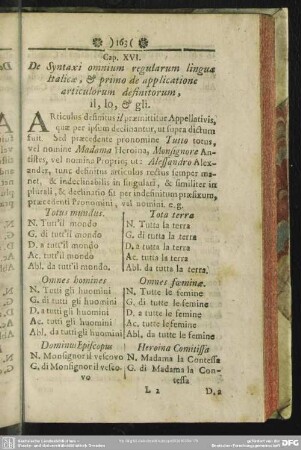 ) 163 (
Cap. XVI.
De Syntaxi omnium regularum linguæ
Italicæ, & primo de applicatione
articulorum definitorum,
il, lo, & gli.
ARticulus definitus il præmittitur Appellativis,
quæ per ipsum declinantur, ut supra dictum
fuit Sed præcedente pronomine Tutto totus,
vel nomine Madama Heroina, Monsignore An-
tistes, vel nomine Proprio; ut: Alessandro Alex-
ander, tunc definitus articulus rectus semper ma-
net, & indeclinabilis in singulari, & similiter in
plurali, & declinatio fit per indefinitum præfixum,
præcedenti Pronomini, vel nomini. e. g.
Totus mundus.
N. Tutt'il mondo
G. di tutt'il mondo
D. a tutt'il mondo
Ac. tutt'il mondo
Abl. da tutt'il mondo.
Omnes homines
N. Tutti gli huomini
G. di tutti gli huomini
D. a tutti gli huomini
Ac. tutti gli huomini
Abl. da tutti gli huomini
Dominus Episcopus
N. Monsignor il vescovo
G. di Monsignor il vesco-
vo
Tota terra
N. Tutta la terra
G. di tutta la terra
D. a tutta la terra
Ac. tutta la terra
Abl. da tutta la terra.
Omnes fœminæ.
N. Tutte le femine
G. di tutte le femine
D. a tutte le femine
Ac. tutte le femine
Abl. da tutte le femine
Heroina Comitissa
N. Madama la Contessa
G. di Madama la Con-
tessa
L 2
D. a